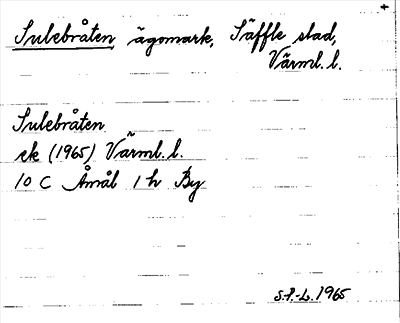 +
Sulebråten, ägomark, Säffle stad,
Värml. l.
Sulebråten
ek (1965) Värml. l.
10 C Åmål 1 h By
S.P.-L. 1965